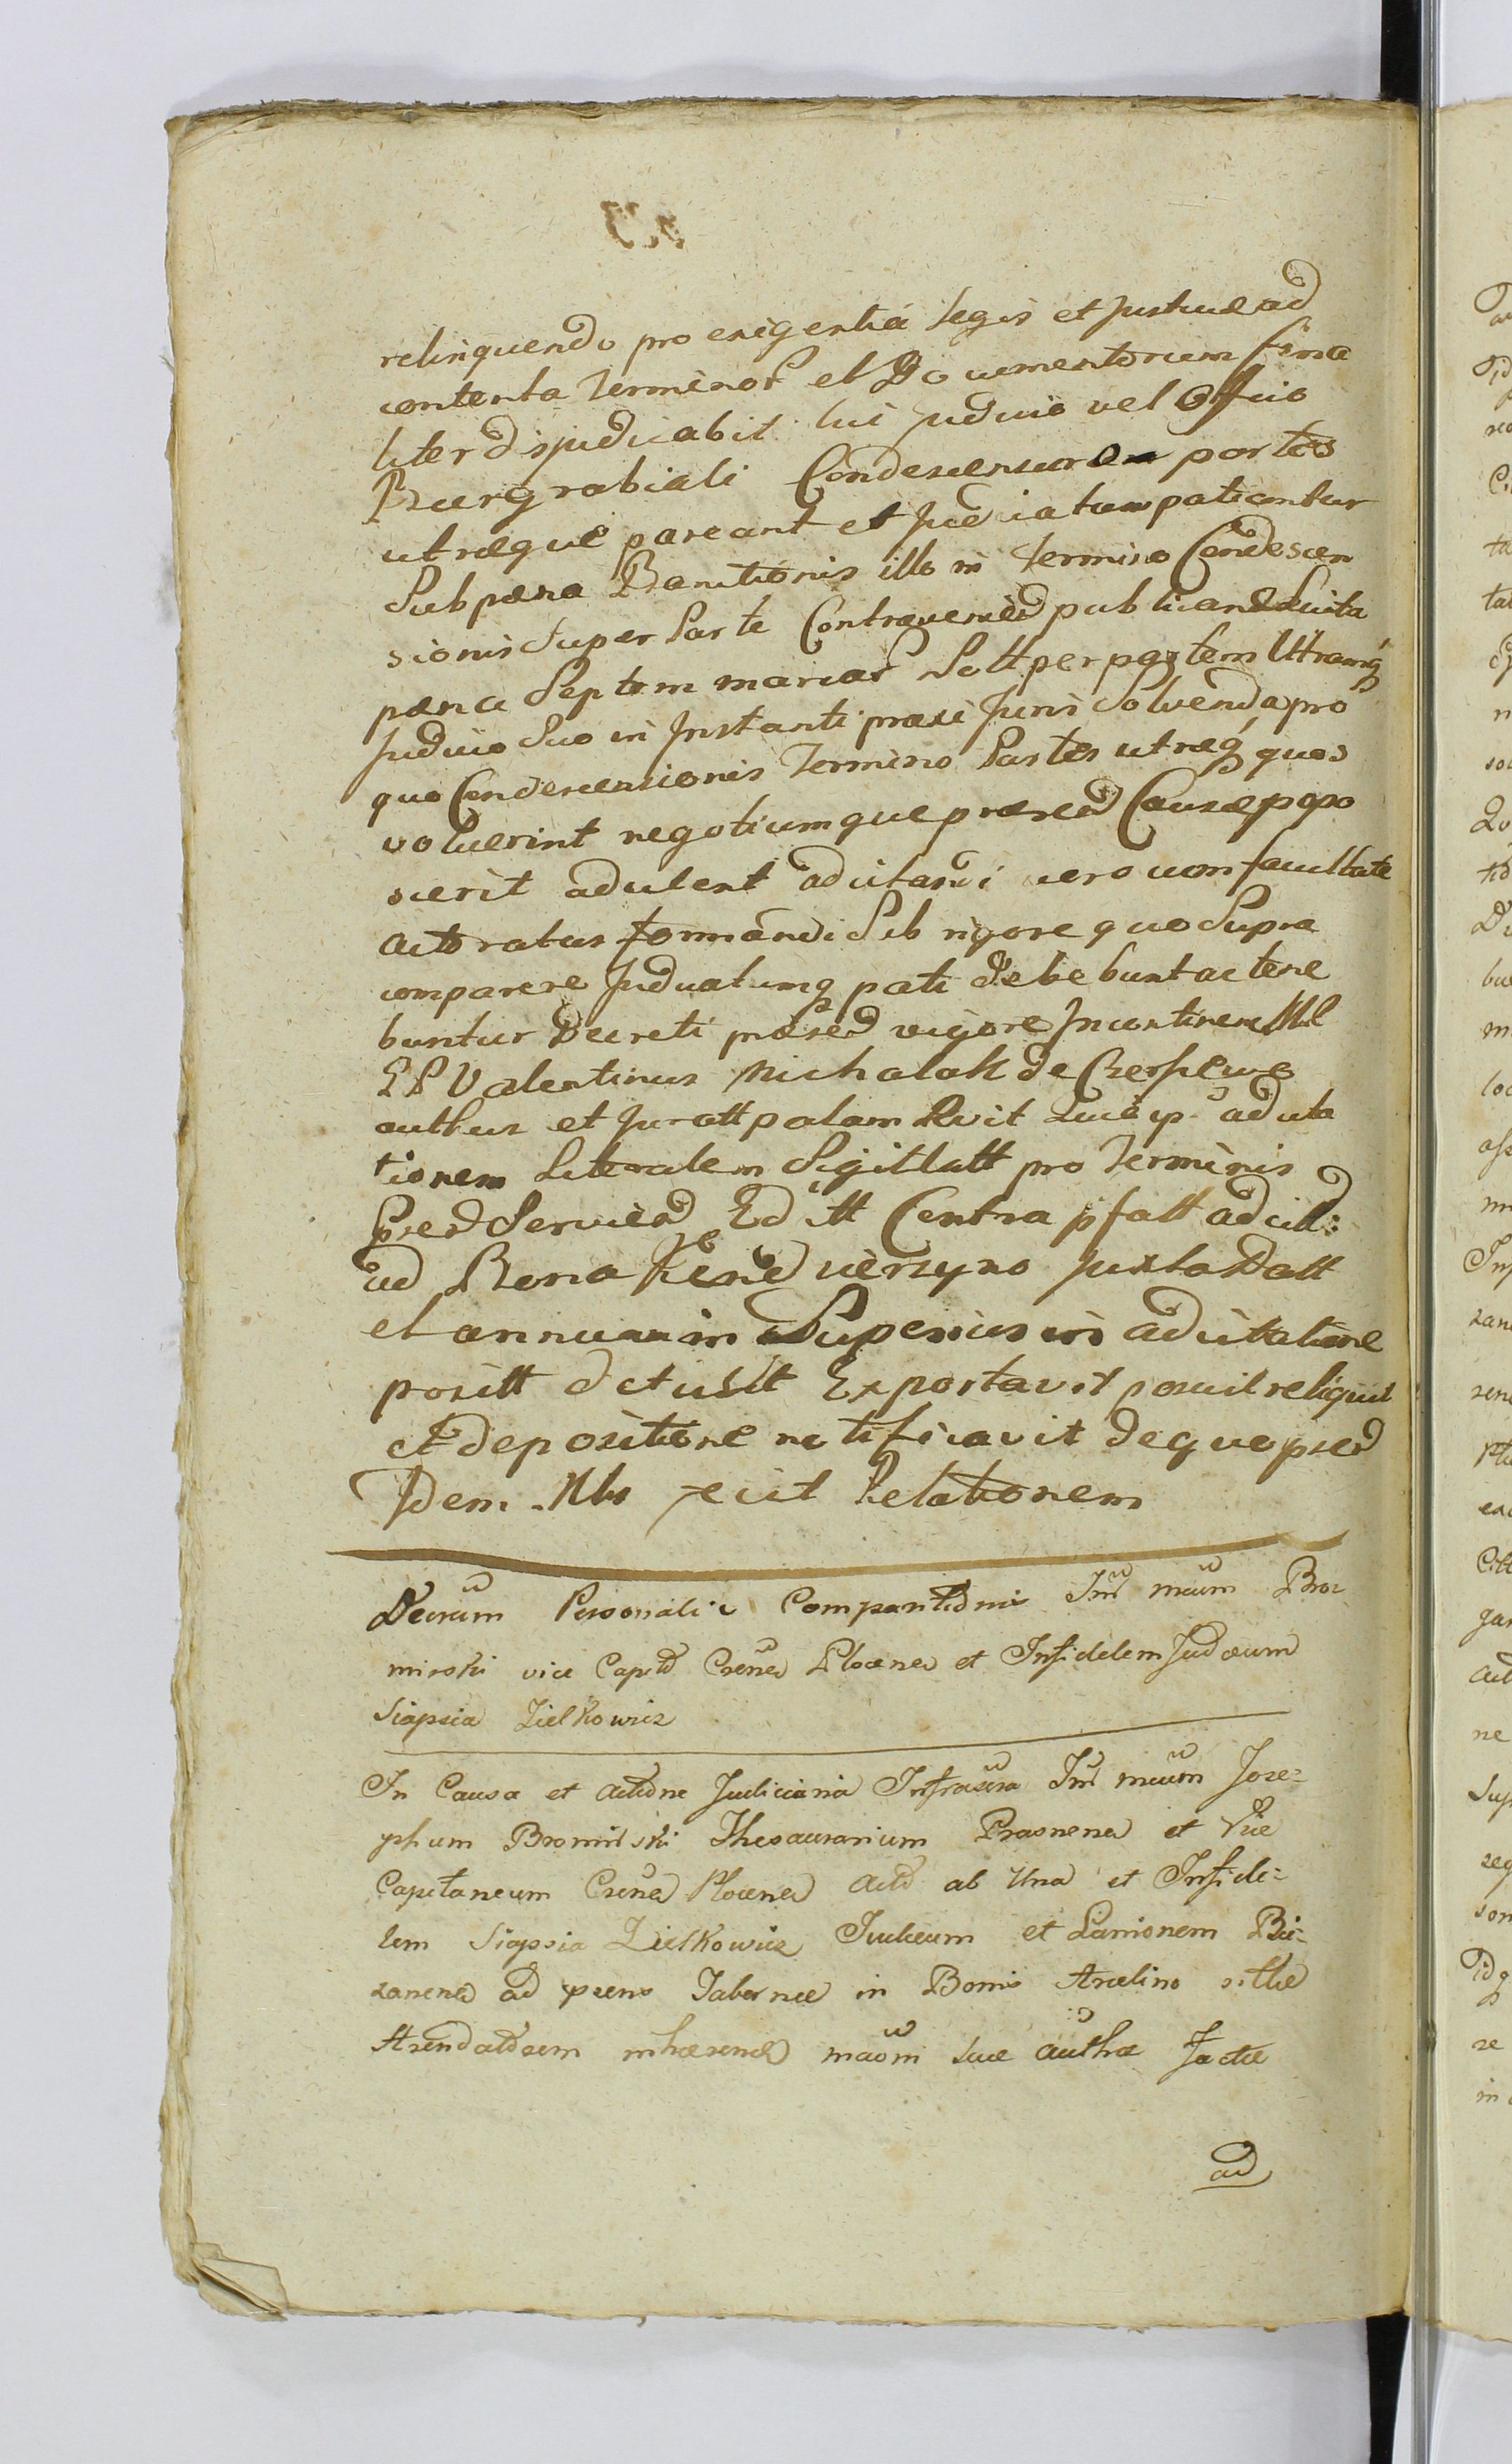 relinquendo pro exigentia Legis et Justitiæ ad
contenta Terminor et Documentorum fina
liter dijudicabit cui Judicio vel Officio
Burgrabiali Condescensurο partes
utræque pareant et Judicatum patiantur
Sub pæna Banitionis illo in Termino Condescen
sionis Super Parte Contravenied publicand Luita
pæna Septem marcar Poll per partem Utramq
Judicio Suo in Instanti præxi Juris Solvenda pro
quo Condescensionis Termino Partes utræq quos
voluerint negotiumque præsed Causæ popo
scerit adcitent adcitandi vero cum facultate
actoratus formandi Sub rigore quo Supra
comparere Judicatumq pati debebunt ac tene
buntur Decreti præsed vigore Incontinen Mnl
EP Valentinus Michalak de Cze
authus et Juratt palam Rvit Quia ip adcita
tionem Literalem Sigillatt pro Terminis
præd Servied Editt Contra pfatt adcitt:
ad Bona Kend versyno Juxta Datt
et annum in Superius in adcitatione
positt detulit Exportavit posuit reliquit
et depositione notificavit de quo præd
Idem Mlr fecit Relationem
Decrum Personalis Comparitidnis Inr mcum Bro-
mirski vice Captd Crsnen Plocnen et Infidelem Judæum
Siapsia Zielkowicz
In Causa et Actione Judiciaria Infrascra Inr mcum Jose=
phum Bromirski Thesaurarium Prasnenen et Vice
Capitaneum Crsnen Plocnen Actd ab Una et Infide=
lem Siapsia Zielkowicz Judæum et Lanionem Bie=
zanenen ad præns Tabernæ in Bonis Arcelino sittæ
Arendatorem inhærend maom suæ authæ Factæ
ad